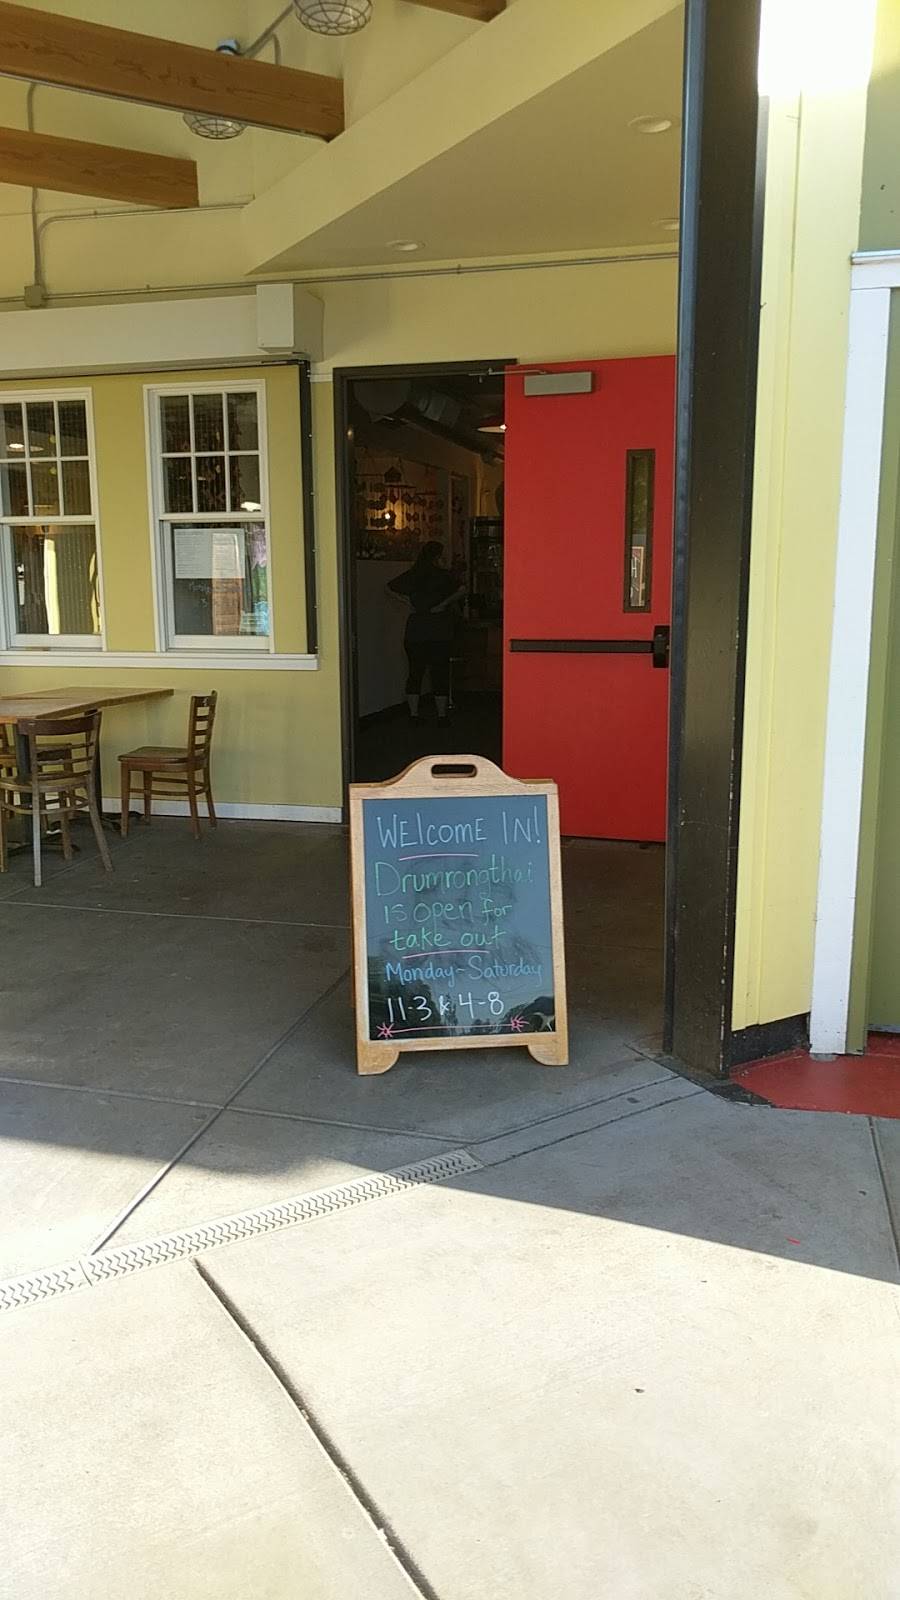 WElcomE IN!
Drumrongthai
is open for
take out
Monday-Saturday
11-3 & 4-8